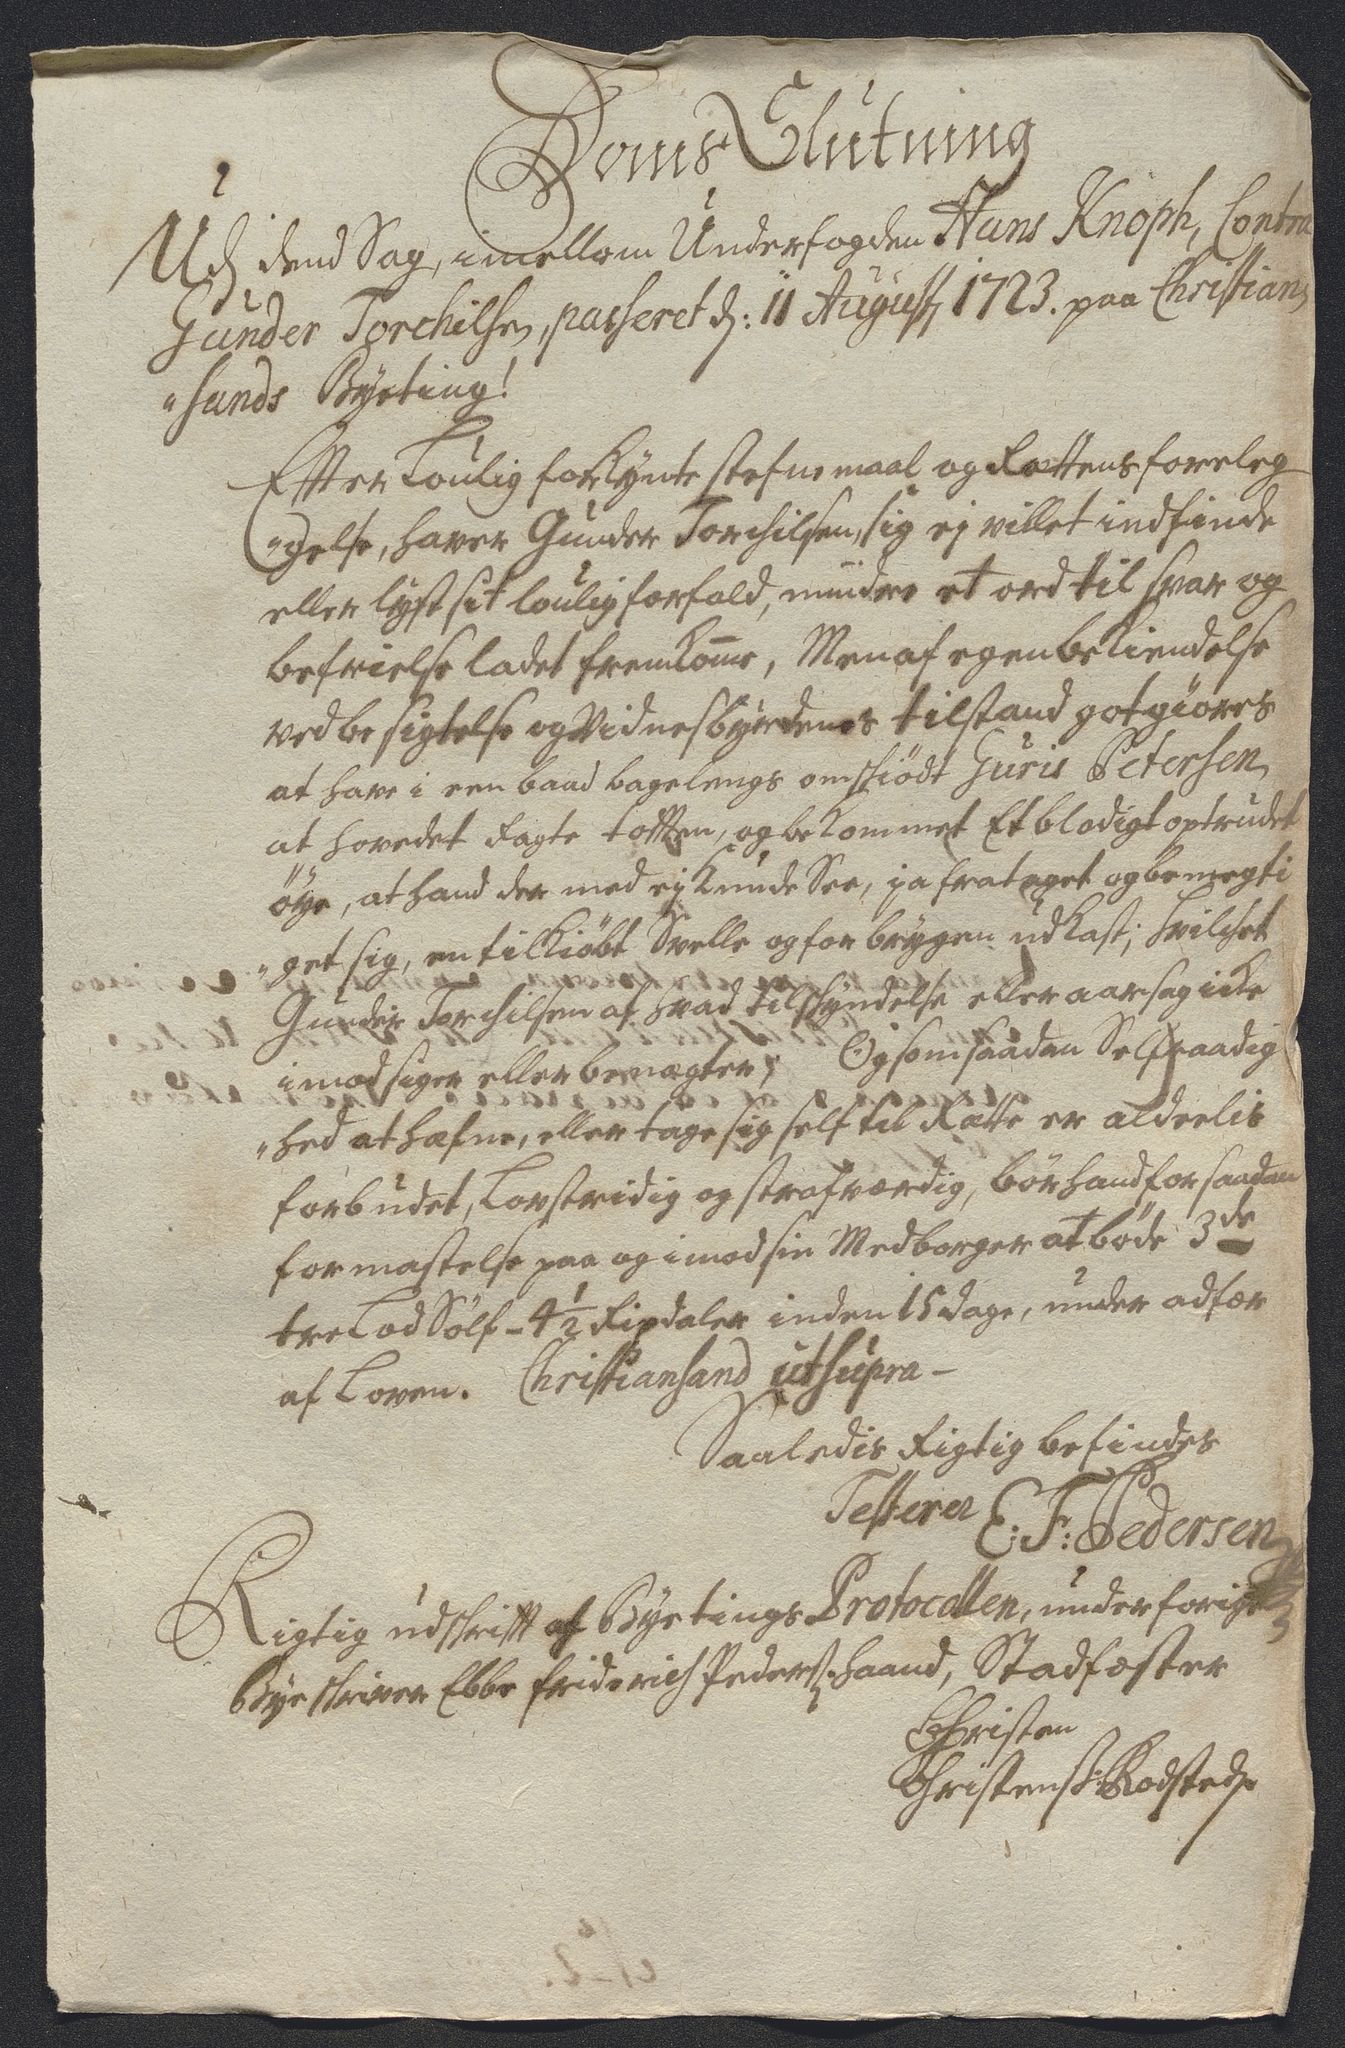 Doms Slutning
Udj dend Sag, imellom Underfogden Hans Knoph, Contra
Gunder Torchilsen, passeret d: 11 August 1723. paa Christian
"sands Byeting!
Effter Loulig forkynte stefnemaal og Rettens foreleg
"gelse, haver Gunder Torchilsen, sig ej villet indfinde
eller lyst sit loulig forfald, mindre et ord til svar og
befrielse ladet fremkomme, Men af egen bekiendelse
ved besigtelse og Vidnesbyrdenes tilstand gotgiöres
at have i een baad bagelengs omstiödt Guris Petersen,
at hovedet Ragte tofften, og bekommet Et blodigt optrudet
öye, at hand der med ej kunde See, ja frataget og bemegti
"get sig, en tilkiöbt Svelle og for brygen udkast; hvilchet
Gunder Torchilsen af hvad tilskyndelse eller aarsag icke
imodsiger eller benægter; Og som saadan Selfraadig
"hed at hæfne, eller tage sig self til Rætte er alderlis
forbudet, Lovstridig og strafværdig, bör hand for saadan
formastelse paa og imod sin Medborger at böde 3de
tre Lod Sölf - 4½ Rixdaler inden 15 dage, under adfær
af Loven. Christiansand ut supra -
Saaledis Rigtig befindes
Testerer E: F: Pedersen
Rigtig udskrifft af Byetings Protocollen, under forige
Byeskriver Ebbe Friderich Peders: haand, Stadfæster
Christen
Christens: Rodsted